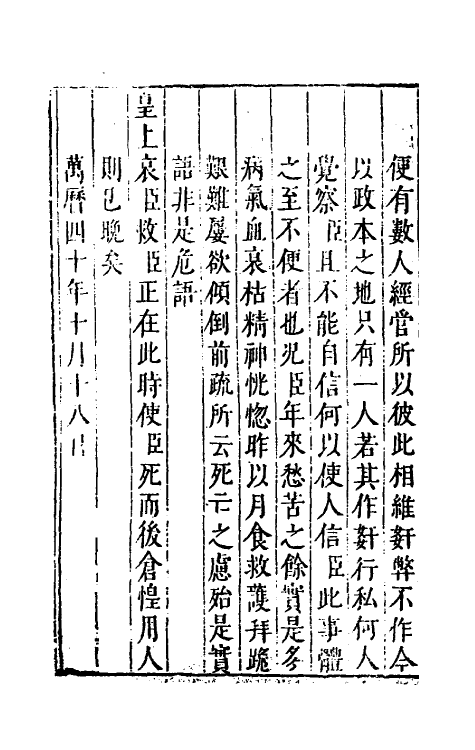 便有數人經營所以彼此相維奸弊不作今
以政本之地只有一人若其作奸行私何人
覺察臣且不能自信何以使人信臣此事體
之至不便者也况臣年來愁苦之餘實是多
病氣血衰枯精神恍惚昨以月食救護拜跪
艱難屢欲傾倒前疏所云死亡之慮殆是實
語非是危語
皇上哀臣救臣正在此時使臣死而後倉惶用人
則已晚矣
萬曆四十年十月十八日